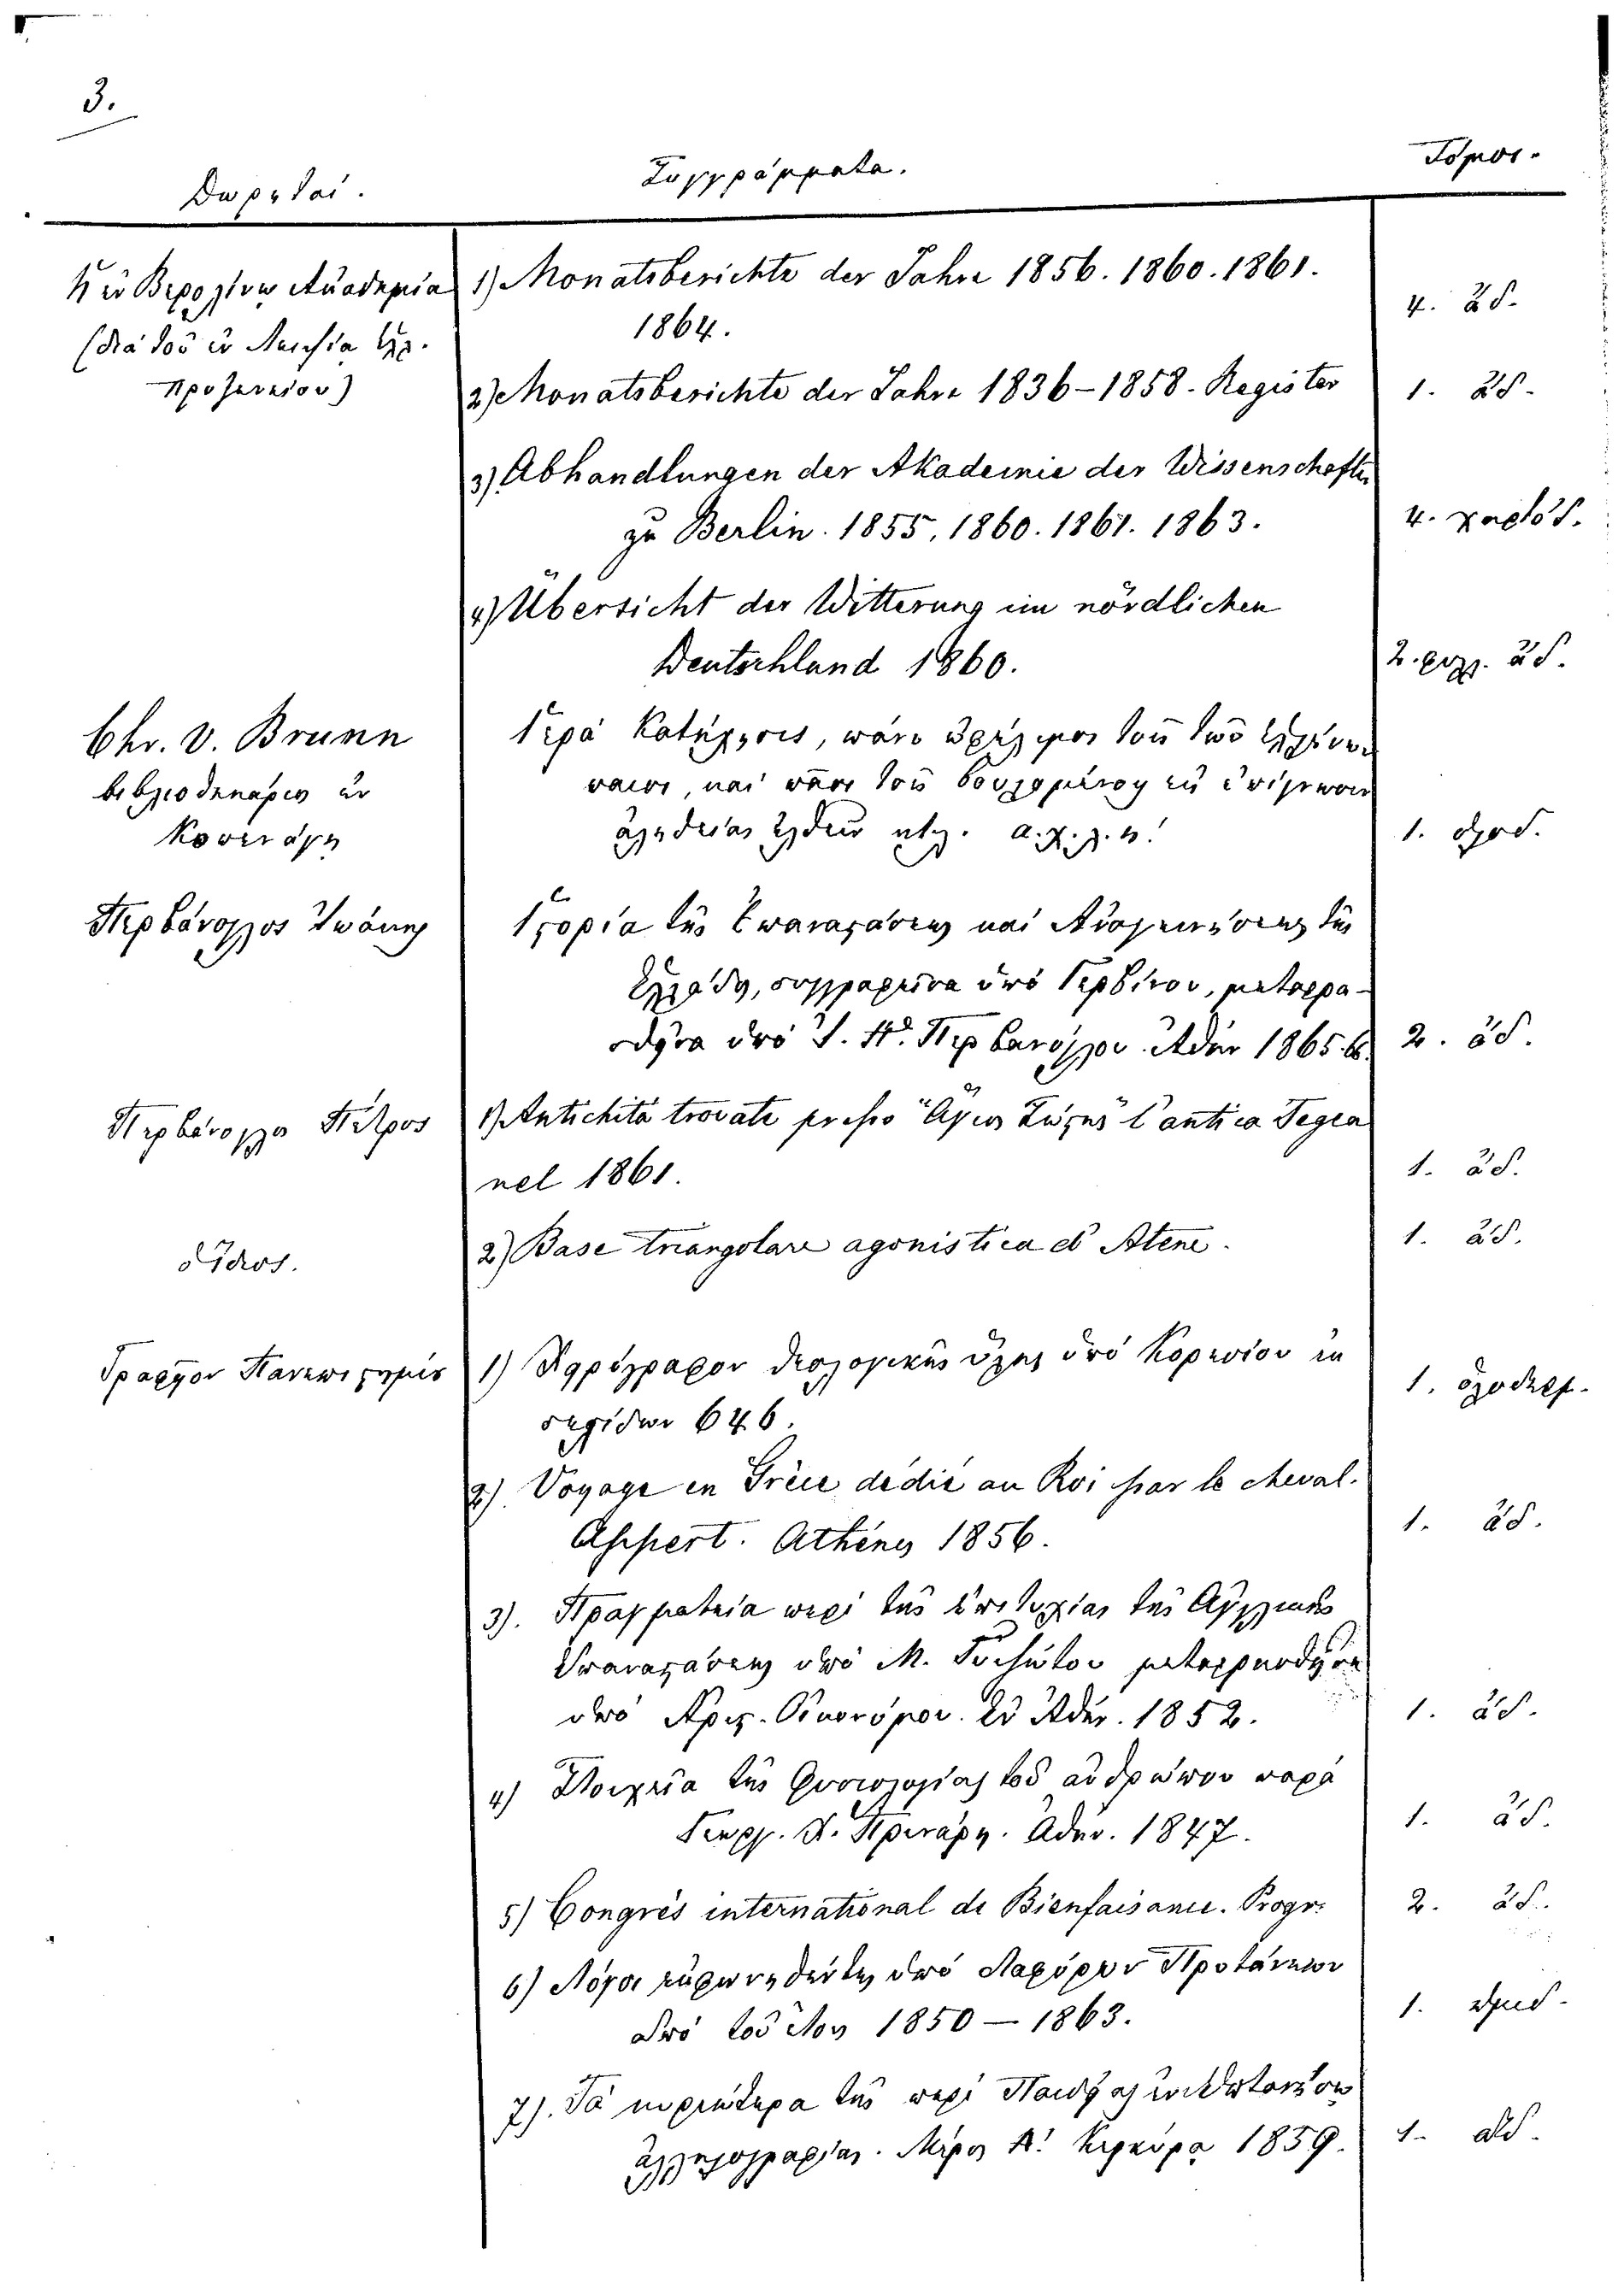 3.
Δωρηταί.
Συγγράμματα.
Τόμοι.
Ἡ ἐν Βερολίνῳ Ἀκαδημία
(διὰ τοῦ ἐν Λειψίᾳ Ἑλ.
Προξενείου)
1) Monatsberichte der Jahre 1856. 1860. 1861.
1864.
4. ἄδ.
2) Monatsberichte der Jahre 1836–1858. Register
1. ἄδ.
3) Abhandlungen der Akademie der Wissenschaften
zu Berlin. 1855. 1860. 1861. 1863.
4. χαρτόδ.
4) Übersicht der Witterung im nördlichen
Deutschland 1860.
2. φυλ. ἄδ.
Chr. v. Brunn
βιβλιοθηκάριος ἐν
Κοπενάγῃ
Ἱερὰ Κατήχησις, πάνυ ὠφέλιμος τοῖς τῶν
καὶ πᾶσι τοῖς βουλομένοις
ἀληθείας ἐλθεῖν κτλ. α.χ.λ.η.
1.
Περβάνογλος Ἰωάνν.
Ἱστορία τῆς Ἐπαναστάσεως καὶ Ἀναγεννήσεως τῆς
Ἑλλάδος, συγγραφεῖσα ὑπὸ Γερβίνου, μεταφρα-
σθεῖσα ὑπὸ Ἰ. Π. Περβάνογλου. Ἀθῆν. 1865. 6.
2. ἄδ.
Περβάνογλος Πέτρος
1) Antichità trovate presso "Ἅγιος Σώστης" l'antica Tegea
nel 1861.
1. ἄδ.
ὁ Ἴδιος.
2) Base triangolare agonistica d' Atene.
1. ἄδ.
Γραφεῖον Πανεπιστημίου
1) Χειρόγραφον θεολογικῆς ὕλης ὑπὸ Κορεσίου ἐκ
σελίδων 646.
1. ὁλόδερ.
2) Voyage en Grèce dédié au Roi par le cheval.
Appert. Athènes 1856.
1. ἄδ.
3). Πραγματεία περὶ τῆς ἐπιτυχίας τῆς Ἀγγλικῆς
Ἐπαναστάσεως ὑπὸ Μ. Γυζώτου μεταφρασθεῖσα
ὑπὸ Ἀρις. Οἰκονόμου. ἐν Ἀθήν. 1852.
1. ἄδ.
4) Στοιχεῖα τῆς Φυσιολογίας τοῦ ἀνθρώπου παρὰ
Γεωργ. Α. Πρινάρη. Ἀθήν. 1847.
1. ἄδ.
5) Congrès international de Bienfaisance. Progr.
2. ἄδ.
6) Λόγοι ἐκφωνηθέντες ὑπὸ διαφόρων Πρυτάνεων
ἀπὸ τοῦ ἔτους 1850 – 1863.
1.
7). Τὰ κυριώτερα τῆς περὶ
ἀλληλογραφίας. Μέρος Α! Κερκύρα 1859.
1. ἄδ.